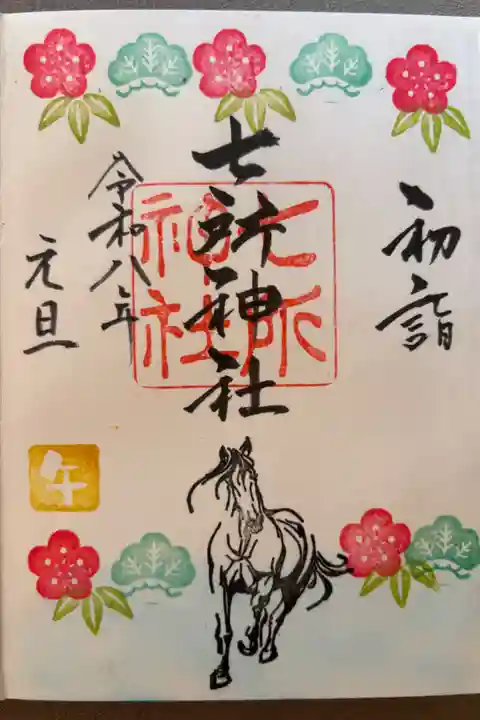 初詣
七所神社
七所
神社
令和八年
元旦
午